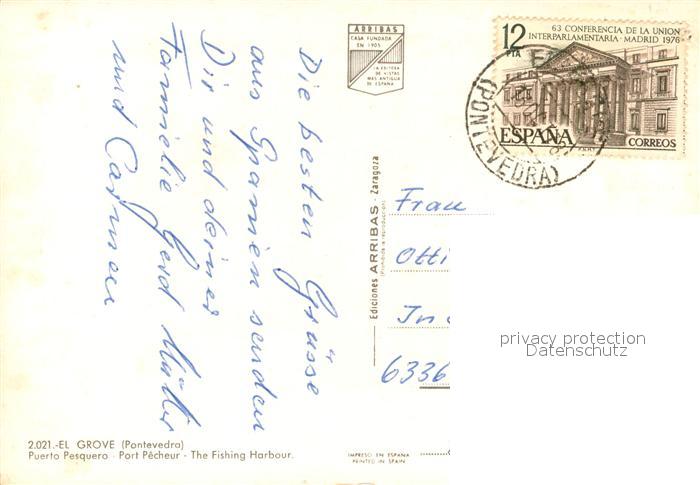 ARRIBAS
CASA FUNDADA
EN 1905
LA EDITORA
DE VISTAS
MAS ANTIGUA
DE ESPAÑA
12
PTA
63 CONFERENCIA DE LA UNION
INTERPARLAMENTARIA · MADRID 1976
ESPAÑA
CORREOS
(PONTEVEDRA)
Die besten Grüsse
aus Spanien senden
Dir und deiner
Familie Gerd Müller
und Carmen
Ediciones ARRIBAS · Zaragoza
(Prohibida la reproducción)
Frau
Otti
In
6336
privacy protection
Datenschutz
2.021.-EL GROVE (Pontevedra)
Puerto Pesquero · Port Pêcheur - The Fishing Harbour.
IMPRESO EN ESPAÑA
PRINTED IN SPAIN